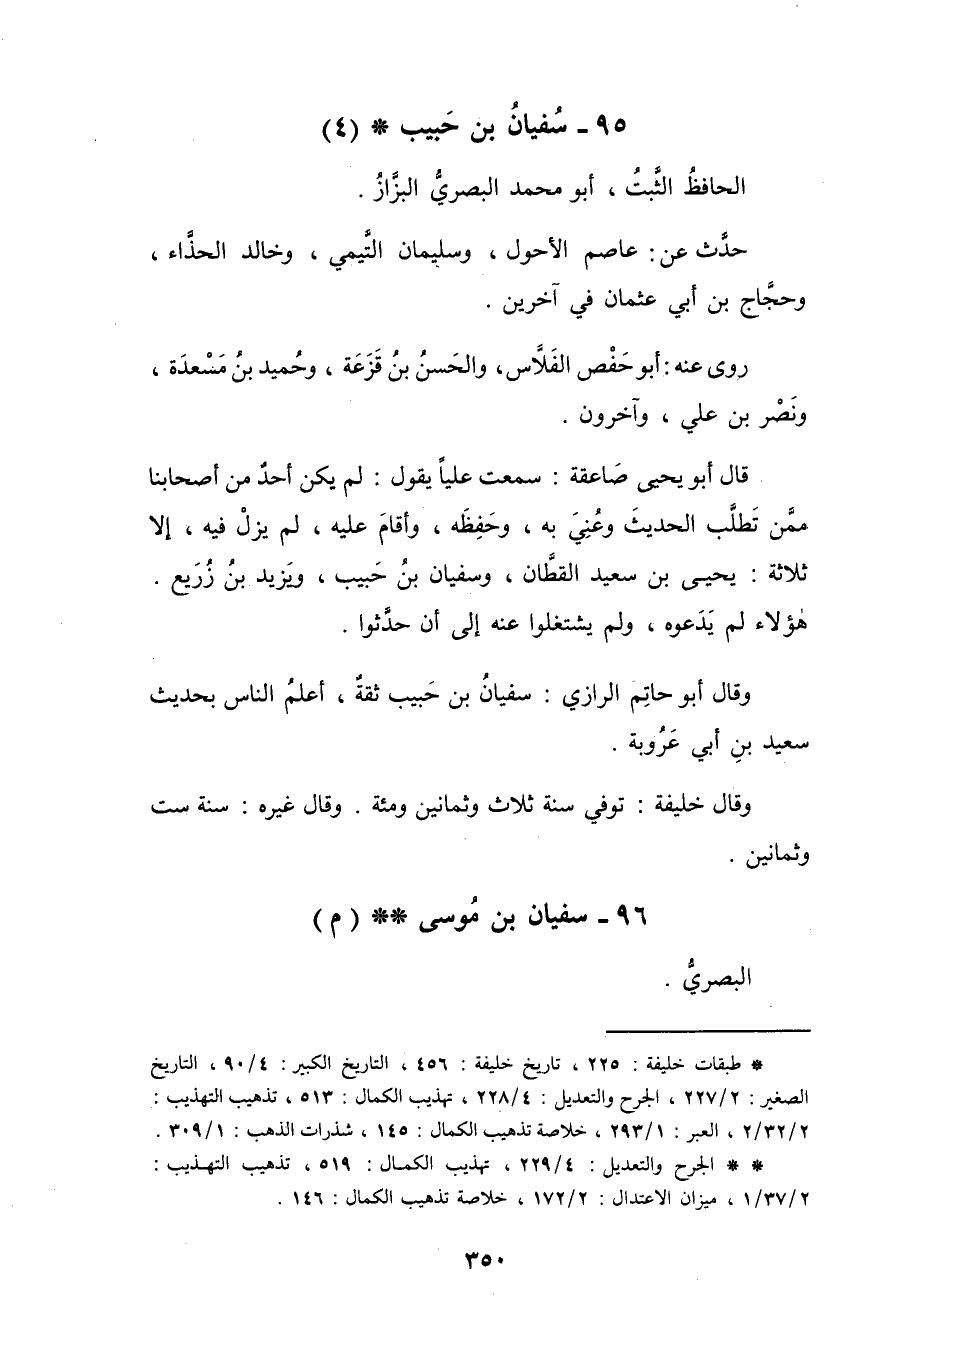 ٩٥ ـ سُفيانُ بن حَبيب * (٤)
الحافظُ الثَّبتُ ، أبو محمد البصريُّ البزَّازُ .
حدَّث عن : عاصم الأحول ، وسليمان التَّيمي ، وخالد الحذَّاء ،
وحجَّاج بن أبي عثمان في آخرين .
روى عنه : أبو حَفْص الفَلَّاس ، والحَسنُ بنُ قَزَعَة ، وحُميد بنُ مَسْعدَة ،
ونَصْر بن علي ، وآخرون .
قال أبو يحيى صَاعقة : سمعت علياً يقول : لم يكن أحدٌ من أصحابنا
ممَّن تَطلَّب الحديثَ وعُنِيَ به ، وحَفِظَه ، وأقامَ عليه ، لم يزلْ فيه ، إلا
ثلاثة : يحيـى بن سعيد القطَّان ، وسفيان بنُ حَبيب ، ويَزيد بنُ زُرَيع .
هٰؤلاء لم يَدَعوه ، ولم يشتغلوا عنه إلى أن حدَّثوا .
وقال أبو حاتِم الرازي : سفيانُ بن حَبيب ثقةٌ ، أعلمُ الناس بحديث
سعيد بنِ أبي عَرُوبة .
وقال خليفة : توفي سنة ثلاث وثمانين ومئة . وقال غيره : سنة ست
وثمانين .
٩٦ ـ سفيان بن مُوسى ** (م)
البصريُّ .
* طبقات خليفة : ٢٢٥ ، تاريخ خليفة : ٤٥٦ ، التاريخ الكبير : ٩٠/٤ ، التاريخ
الصغير : ٢٢٧/٢ ، الجرح والتعديل : ٢٢٨/٤ ، تهذيب الكمال : ٥١٣ ، تذهيب التهذيب :
٢/٣٢/٢ ، العبر : ٢٩٣/١ ، خلاصة تذهيب الكمال : ١٤٥ ، شذرات الذهب : ٣٠٩/١ .
* * الجرح والتعديل : ٢٢٩/٤ ، تهذيب الكمـال : ٥١٩ ، تذهيب التهـذيب :
١/٣٧/٢ ، ميزان الاعتدال : ١٧٢/٢ ، خلاصة تذهيب الكمال : ١٤٦ .
٣٥٠